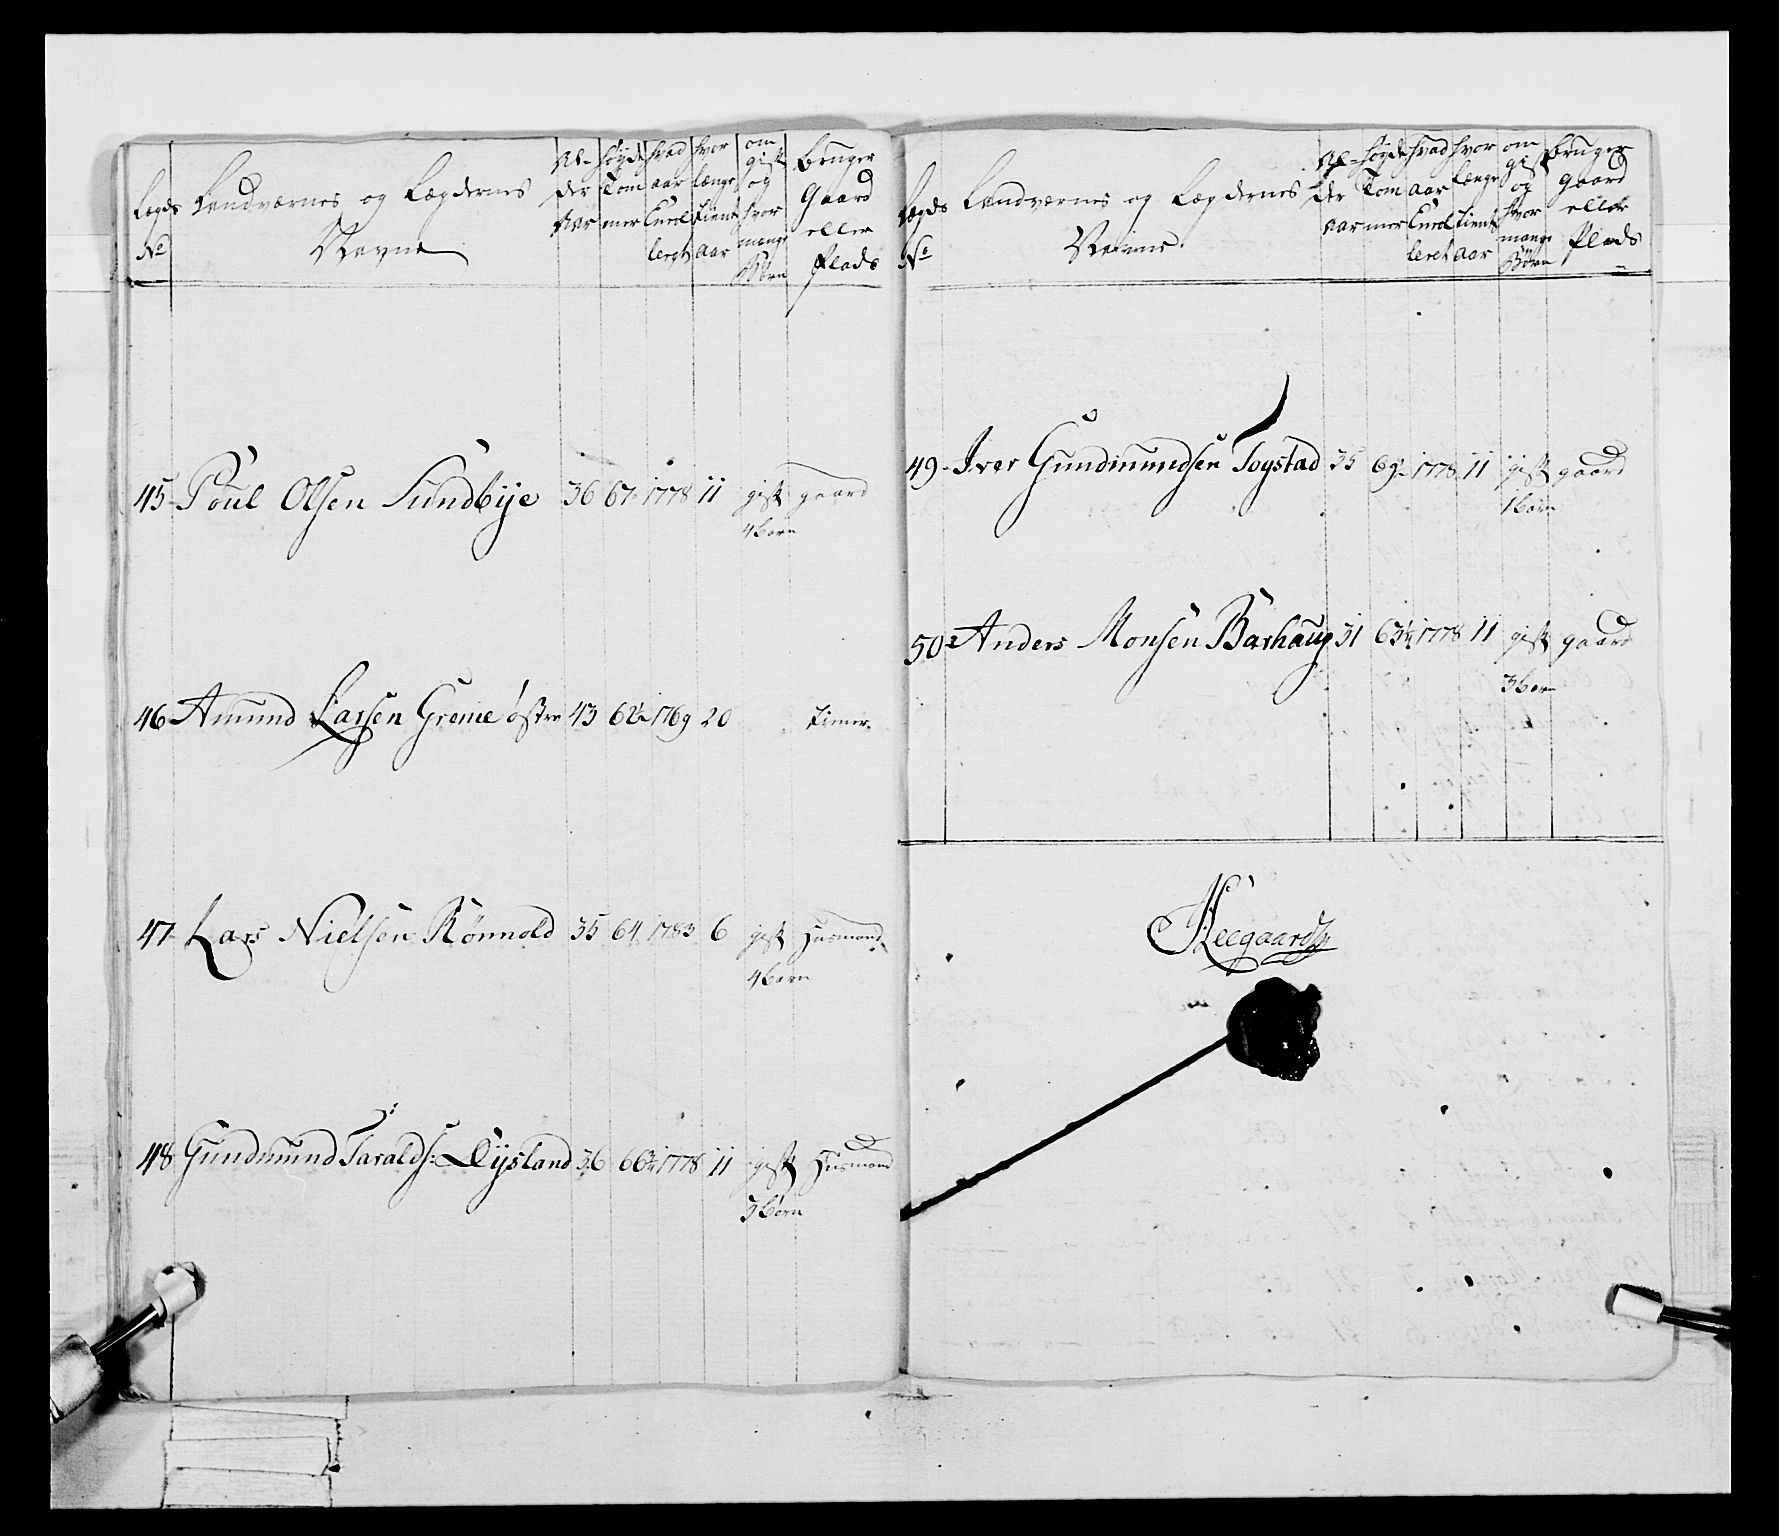 Lægds No | Landværnes og Lægdernes Navne | Al- der Aar | Høyde Tom mer | hvad aar Enrol leret | hvor længe tient aar | om gift og hvor mange Børn | bruger Gaard eller Plads
45 Poul Olsen Sundbye 36 67 1778 11 gift gaard
4 børn
46 Amund Larsen Greme østre 43 62½ 1769 20 timer
47 Lars Nielsen Rönnold 35 64 1783 6 gift Husmand
4 børn
48 Gundmund Taralds: Dysland 36 66 1778 11 gift Husmand
3 børn
Lægds No | Landværnes og Lægdernes Navne | Al- der aar | Høyde Tom mer | hvad aar Enrol leret | hvor længe tient aar | om gift og hvor mange Børn | bruger gaard eller Plads
49 Iver Gundmundsen Toystad 35 69½ 1778 11 gift gaard
1 børn
50 Anders Monsen Barhaug 31 63½ 1778 11 gift gaard
3 børn